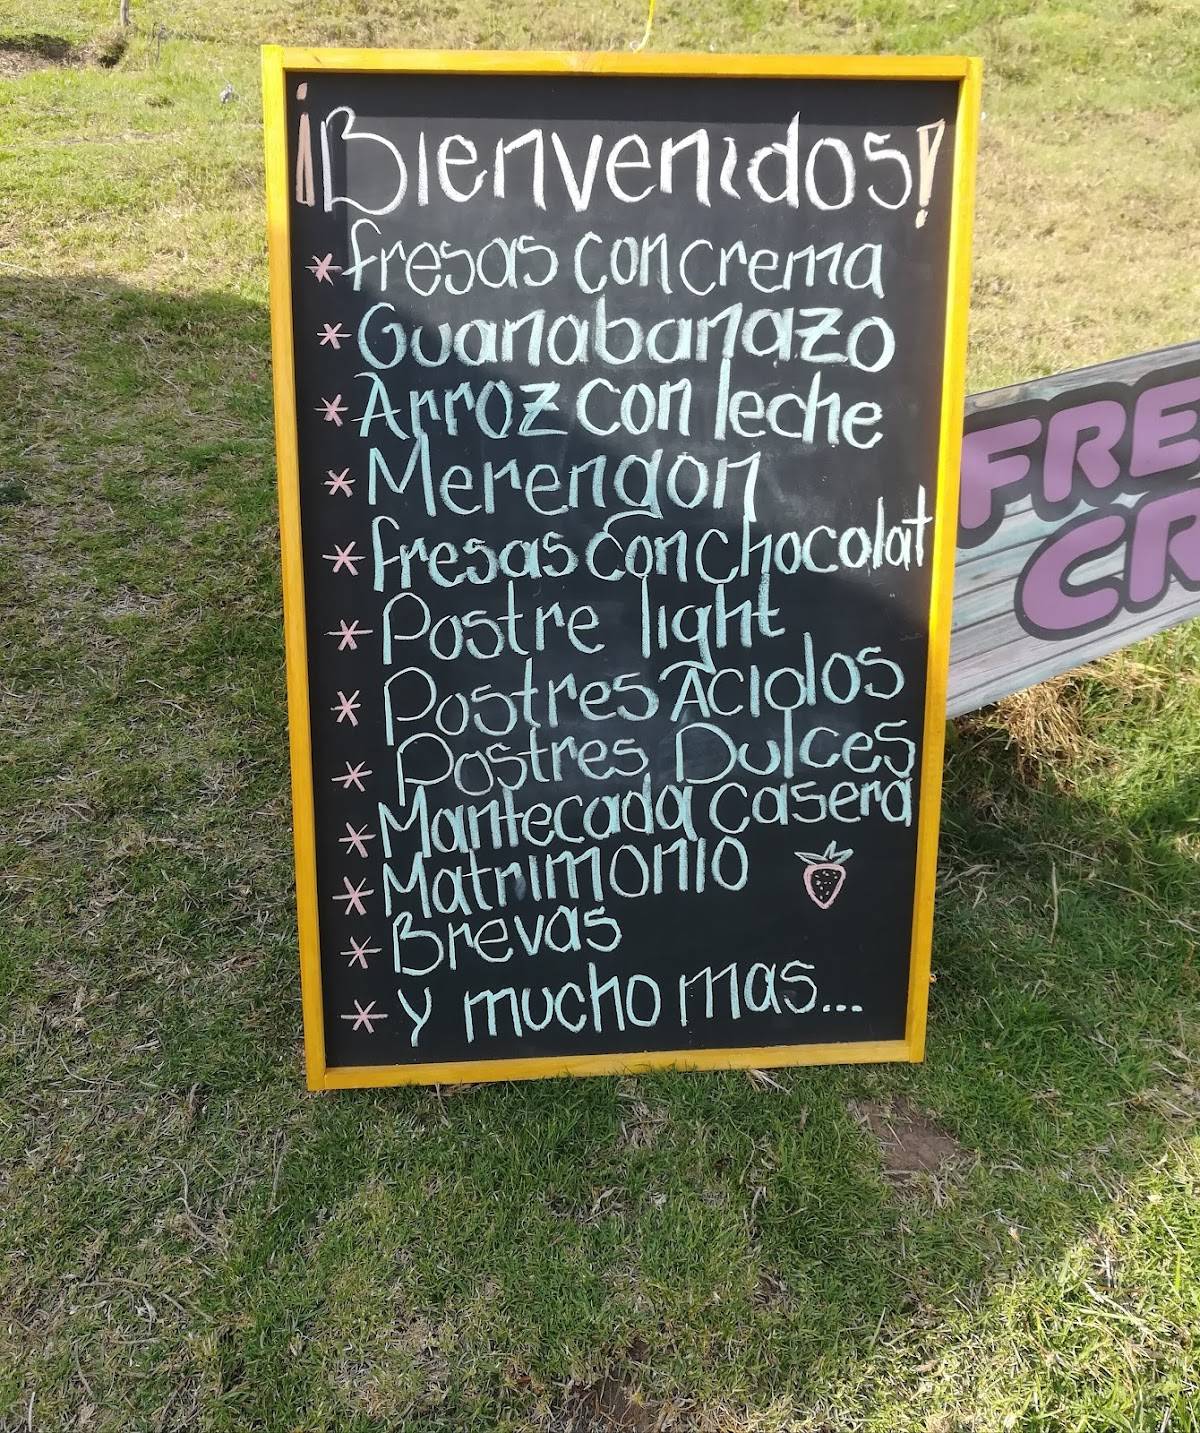 ¡Bienvenidos!
* fresas con crema
* Guanabanazo
* Arroz con leche
* Merengon
* fresas con chocolat
* Postre light
* Postres Acidos
* Postres Dulces
* Mantecada casera
* Matrimonio
* Brevas
* y mucho mas...
FRE
CR